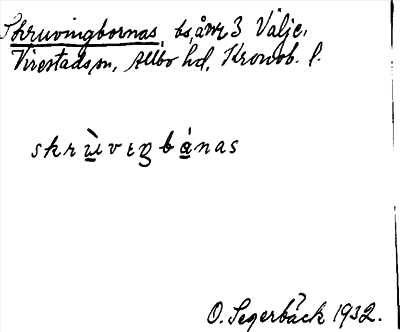 Skruvingbornas, bs, å nr 3 Välje,
Virestads sn, Allbo hd, Kronob. l.
skrùvɪŋbánas
O. Segerbäck 1932.